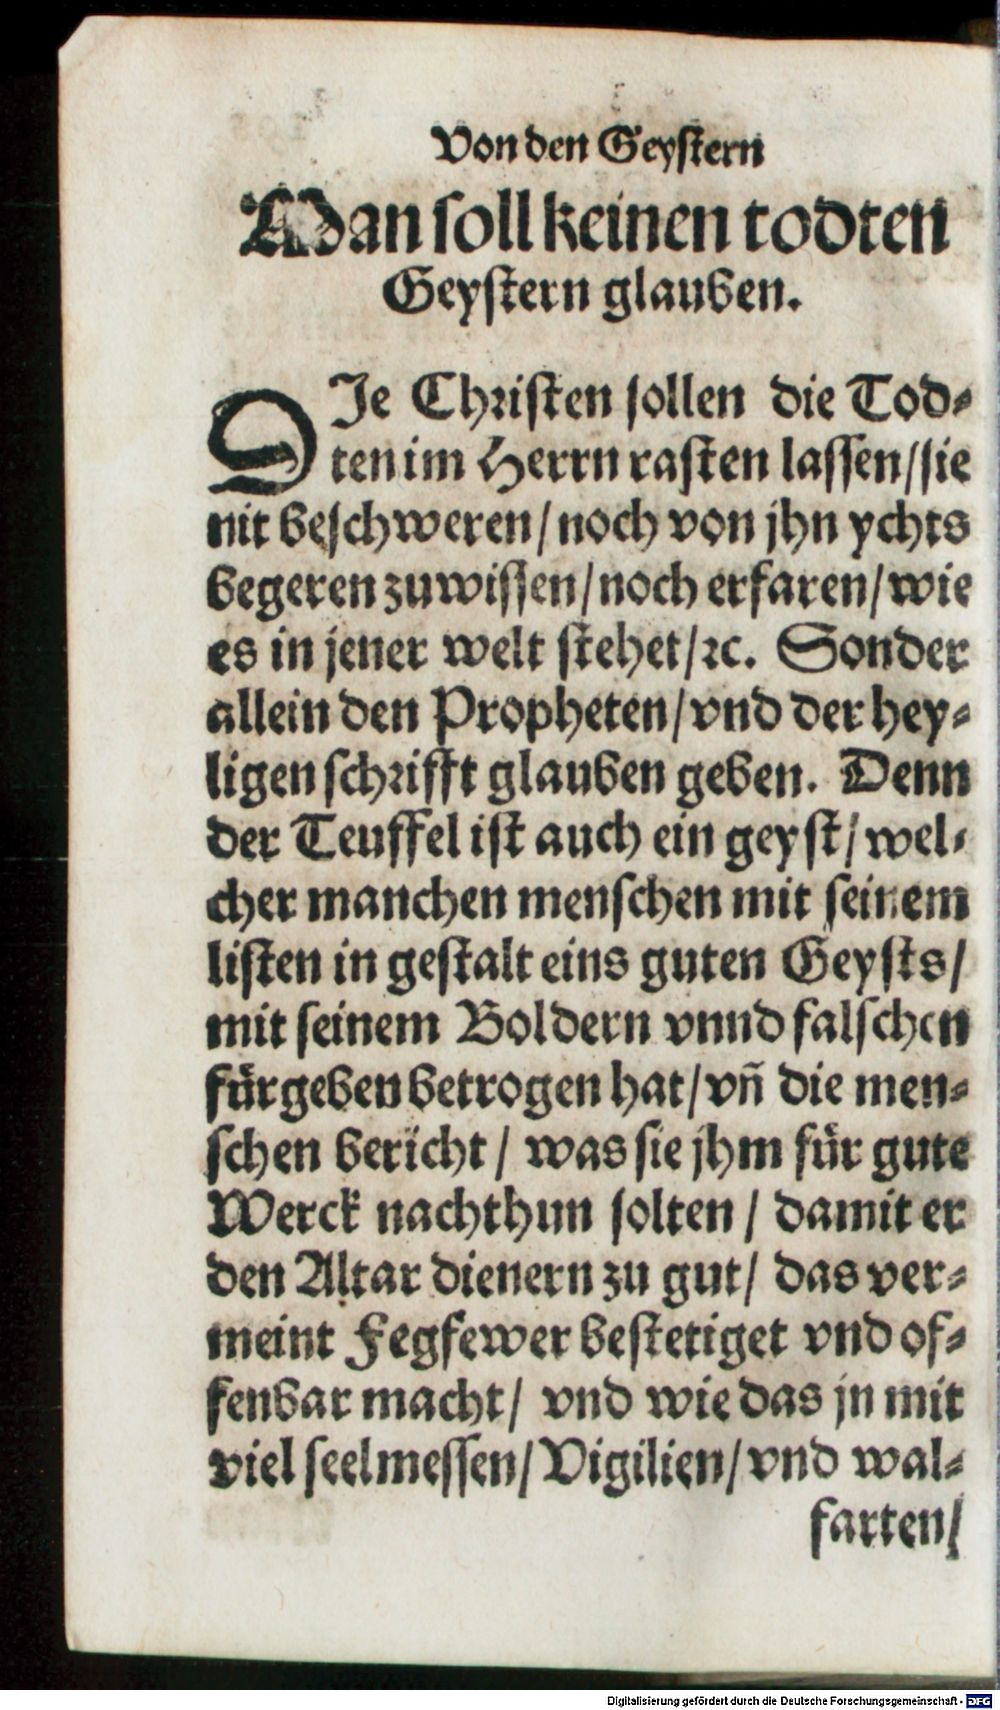 Von den Geystern
Man soll keinen todten
Geystern glauben.
DIe Christen sollen die Tod⸗
ten im Herrn rasten lassen/sie
nit beschweren/noch von jhn ychts
begeren zuwissen/noch erfaren/wie
es in jener welt stehet/ꝛc. Sonder
allein den Propheten/vnd der hey⸗
ligen schrifft glauben geben. Denn
der Teuffel ist auch ein geyst/wel⸗
cher manchen menschen mit seinem
listen in gestalt eins guten Geysts/
mit seinem Boldern vnnd falschen
fürgeben betrogen hat/vñ die men⸗
schen bericht/ was sie jhm für gute
Werck nachthun solten/ damit er
den Altar dienern zu gut/ das ver⸗
meint Fegfewer bestetiget vnd of⸗
fenbar macht/ vnd wie das jn mit
viel seelmessen/Vigilien/vnd wal⸗
farten/
Digitalisierung gefördert durch die Deutsche Forschungsgemeinschaft - DFG